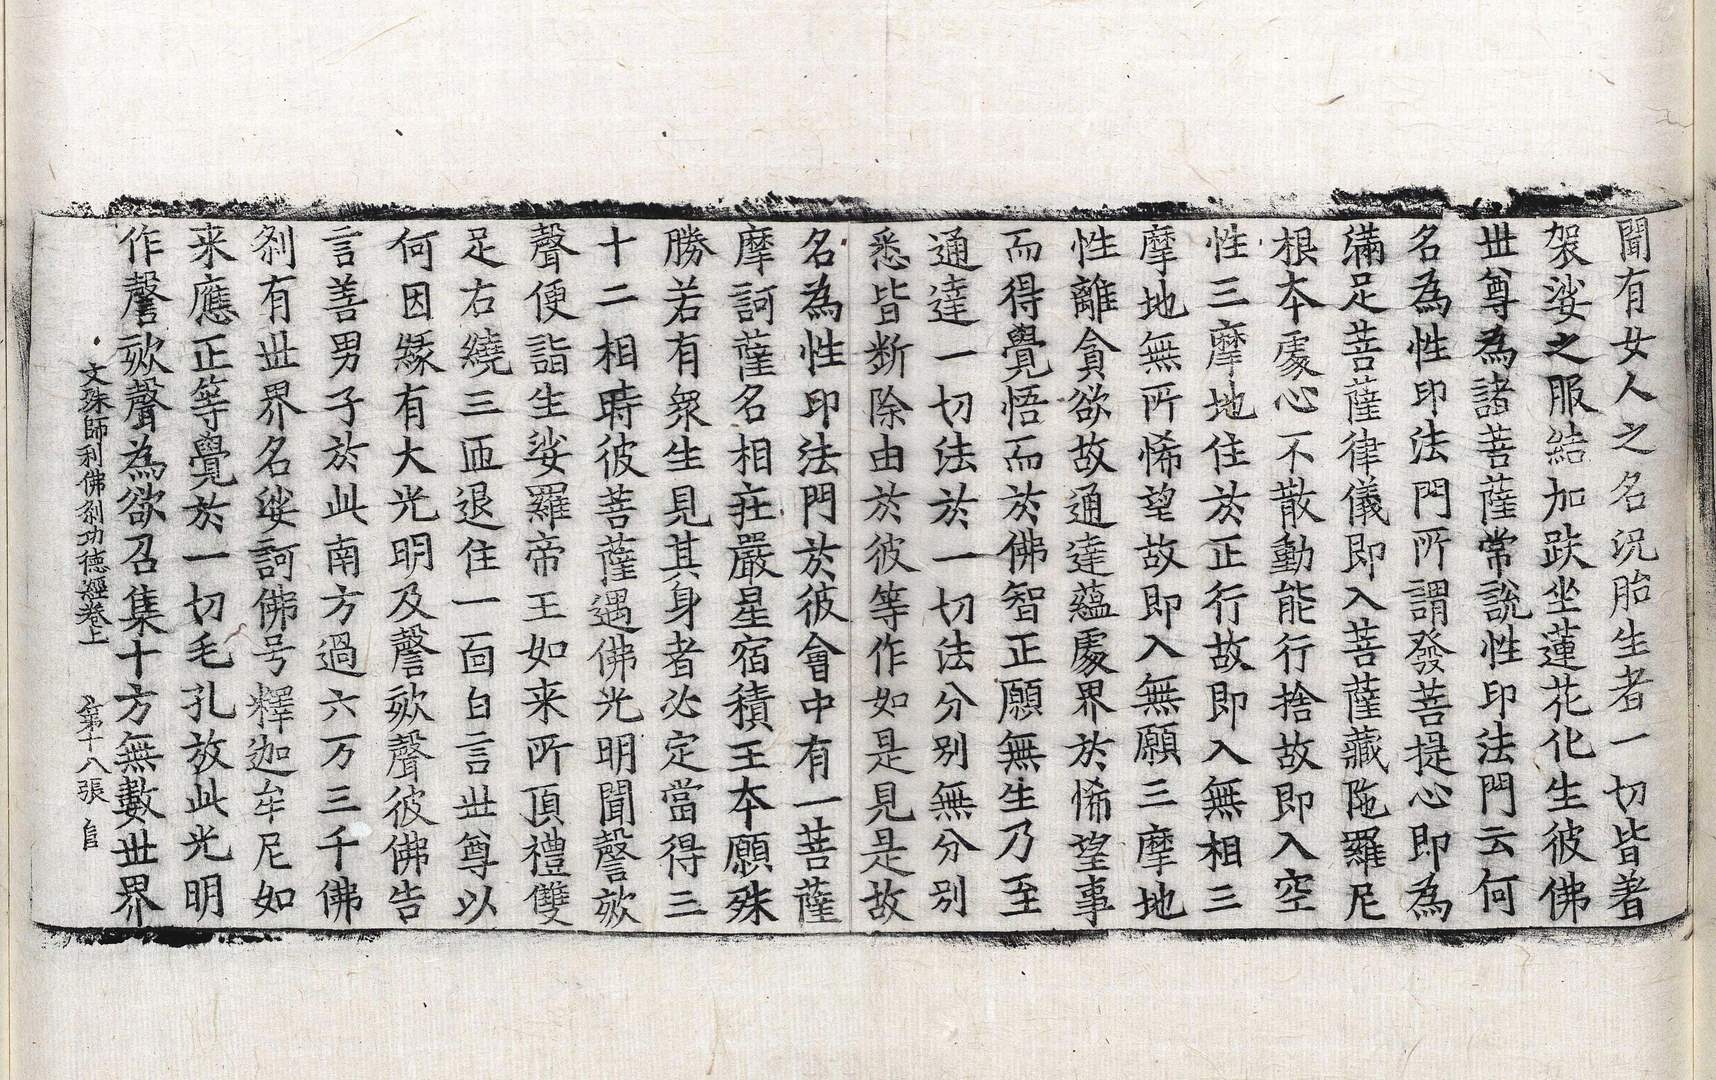 聞有女人之名況胎生者一切皆著
袈裟之服結加趺坐蓮花化生彼佛
世尊為諸菩薩常說性印法門云何
名為性印法門所謂發菩提心即為
滿足菩薩律儀即入菩薩藏陁羅尼
根本處心不散動能行捨故即入空
性三摩地住於正行故即入無相三
摩地無所悕望故即入無願三摩地
性離貪欲故通達蘊處界於悕望事
而得覺悟而於佛智正願無生乃至
通達一切法於一切法分別無分別
悉皆断除由於彼等作如是見是故
名為性印法門於彼會中有一菩薩
摩訶薩名相莊嚴星宿積王本願殊
勝若有衆生見其身者必定當得三
十二相時彼菩薩遇佛光明聞謦欬
聲便詣生娑羅帝王如来所頂禮雙
足右繞三匝退住一面白言世尊以
何因緣有大光明及謦欬聲彼佛告
言善男子於此南方過六万三千佛
刹有世界名娑訶佛号釋迦牟尼如
来應正等覺於一切毛孔放此光明
作謦欬聲為欲召集十方無數世界
文殊師利佛刹功德經卷上 第十八張 自